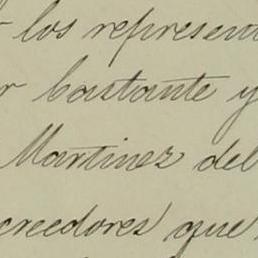 los represent
r bastante y
Martinez del
creedores que